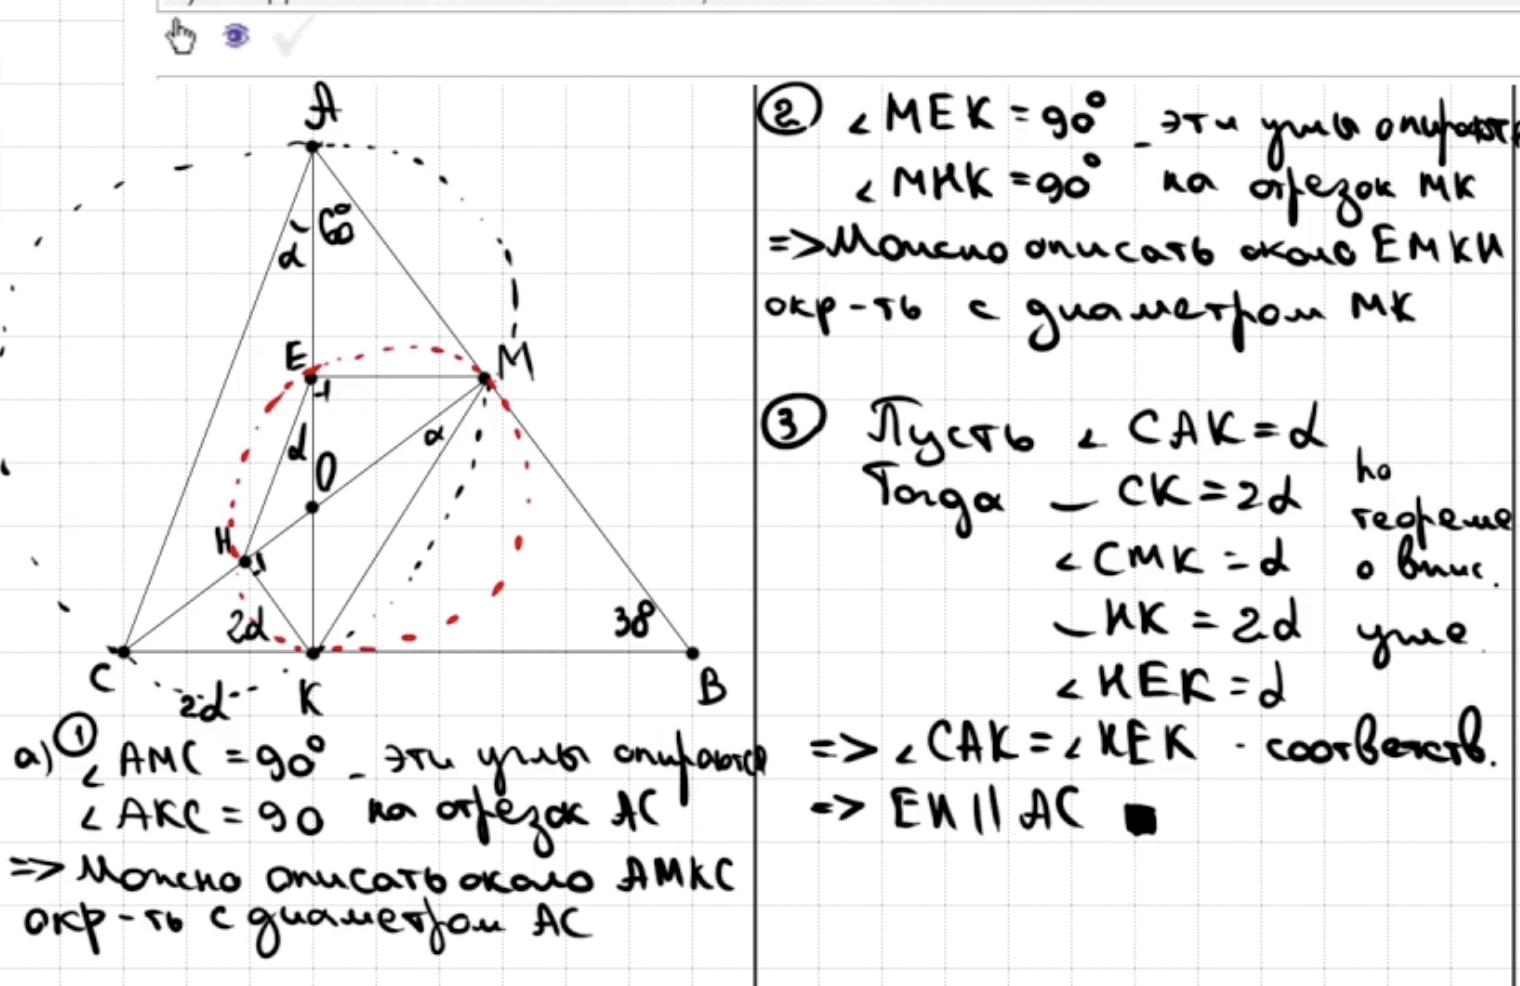 A
α 60°
E M
α α
O
H
2α 30°
C K B
2α
а) ① ∠ AMC = 90° - эти углы опираются
∠ AKC = 90 на отрезок AC
=> Можно описать около AMKC
окр-ть с диаметром AC
② ∠ MEK = 90° - эти углы опираются
∠ MHK = 90° на отрезок MK
=> Можно описать около EMKH
окр-ть с диаметром MK
③ Пусть ∠ CAK = α
Тогда ◡ CK = 2α по
теореме
∠ CMK = α о впис.
◡ HK = 2α угле
∠ HEK = α
=> ∠ CAK = ∠ HEK - соответств.
=> EH || AC ■